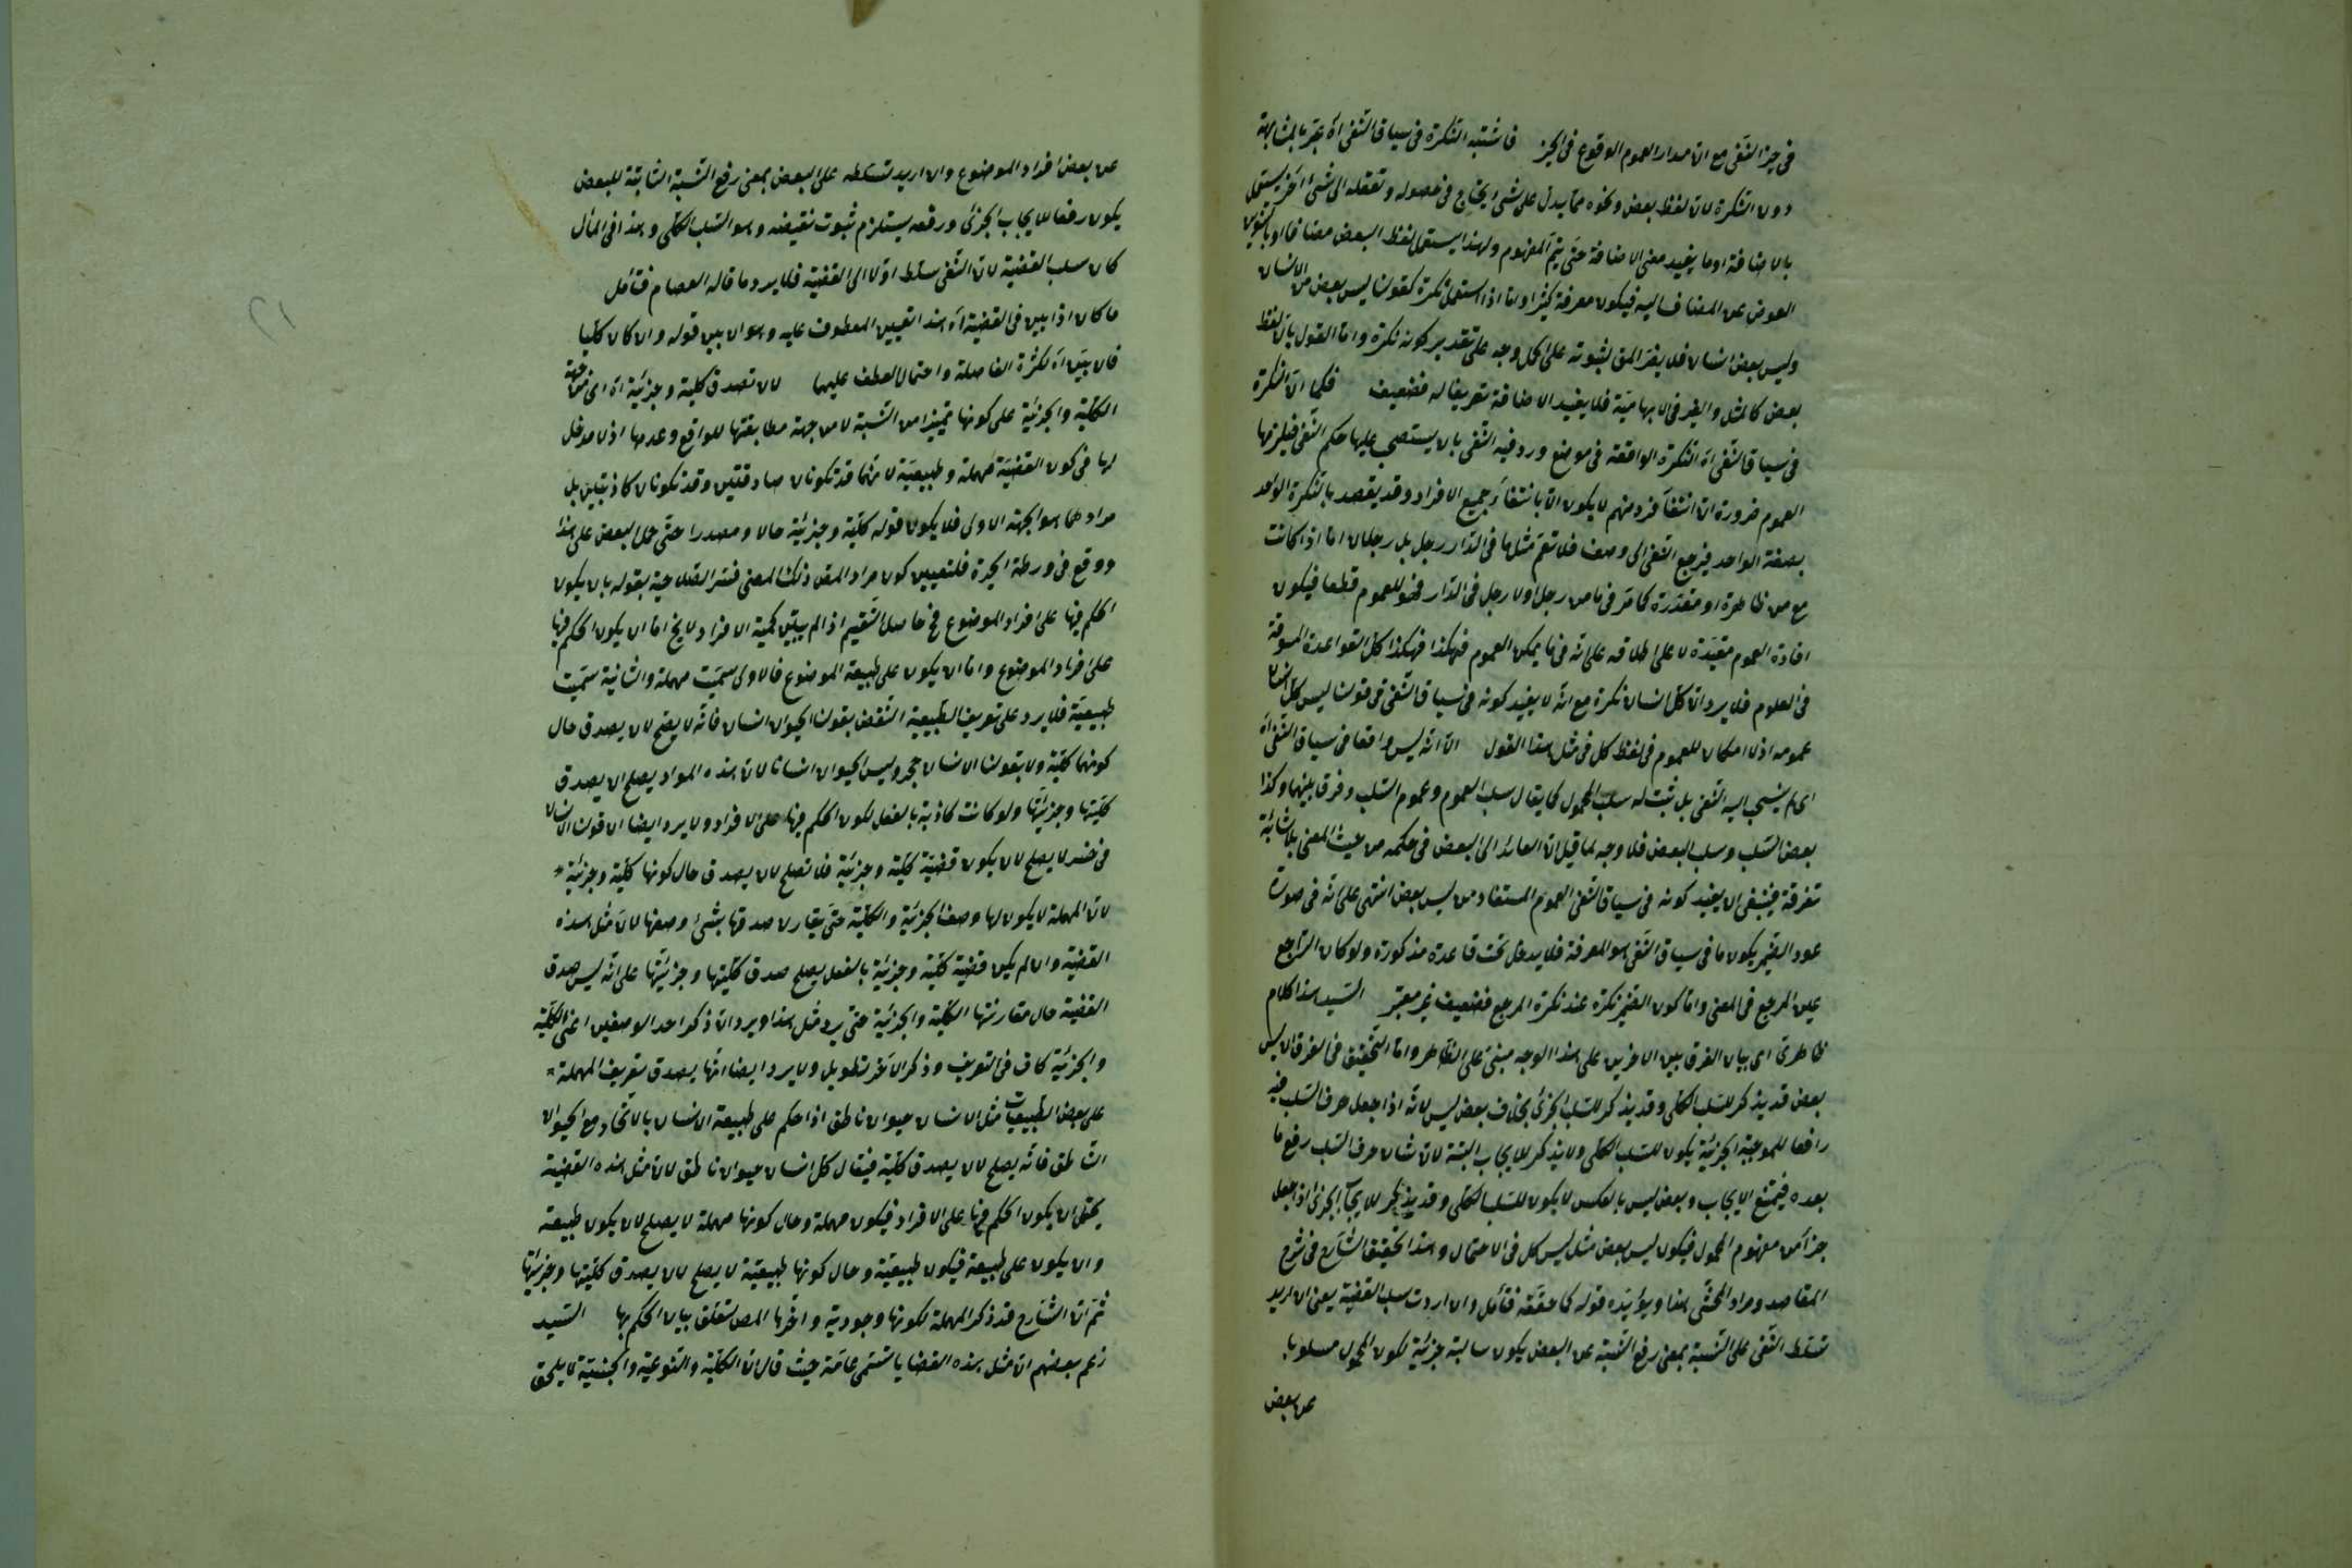 فى حيز النفى مع ان مدار العموم الوقوع فى الحيز فاشتبه النكرة فى سياق النفى اه عبر بالمشابهة
دون النكرة لان لفظ بعض ونحوه مما يدل على شئ يحتاج فى حصوله وتعقله الى شئ آخر يستعمل
بالاضافة او ما يفيد معنى الاضافة حتى يتم المفهوم ولهذا يستعمل لفظ البعض مضافا او بالتنوين
العوض عن المضاف اليه فيكون معرفة كثيرا واما اذا استعمل نكرة كقولنا ليس بعض من الانسان
وليس بعض انسان فلا يضر المق لثبوته على كل وجه على تقدير كونه نكرة واما القول بان لفظ
بعض كالمثل والغير فى الابهامية فلا يفيد الاضافة تعريفا له فضعيف فكما ان النكرة
فى سياق النفى اه النكرة الواقعة فى موضع ورد فيه النفى بان يستصحب عليها حكم النفى فيلزمها
العموم ضرورة ان انتفاء فرد منهم لا يكون الا بانتفاء جميع الافراد وقد يقصد بالنكرة الواحد
بصفة الواحد فيرجع النفى الى وصف فلا تعم مثل ما فى الدار رجل بل رجلان اما اذا كانت
مع من ظاهرة او مقدرة كما مر فى ما من رجل او لا رجل فى الدار فهو للعموم قطعا فيكون
افادة العموم مقيدة لا على اطلاقه على انه فى ما يمكن العموم فهكذا فهكذا كل القواعدة المسوقة
فى العلوم فلا يرد ان كل انسان نكرة مع انه لا يفيد كونه فى سياق النفى فى قولنا ليس كل انسان
عمومه اذ لا امكان للعموم فى لفظ كل فى مثل هذا القول الا انه ليس واقعا فى سياق النفى اه
اى لم ينسحب اليه النفى بل ثبت له سلب المحمول كما يقال سلب العموم وعموم السلب وفرق بينهما وكذا
بعض السلب وسلب البعض فلا وجه لما قيل ان العائد الى البعض فى حكمه من حيث المعنى بلا شائبة
تفرقة فينبغى ان يفيد كونه فى سياق النفى العموم المستفاد من ليس بعض انتهى على انه فى صورة
عود الضمير يكون ما فى سياق النفى هو المعرفة فلا يدخل تحت قاعدة مذكورة ولو كان الراجع
عين المرجع فى المعنى واما كون الضمير نكرة عند نكرة المرجع فضعيف غير معتبر السيد هذا كلام
ظاهرى اى بيان الفرق بين الاخرين على هذا الوجه مبنى على الظاهر واما التحقيق فى الفرق ان ليس
بعض قد يذكر للسلب الكلى وقد يذكر للسلب الجزئى بخلاف بعض ليس لانه اذا جعل حرف السلب فيه
رافعا للموجبة الجزئية يكون للسلب الكلى ولا يذكر للايجاب البتة لان شان حرف السلب رفع ما
بعده فيمتنع الايجاب وبعض ليس بالعكس لا يكون للسلب الكلى وقد يذكر للايجاب الجزئى اذا جعل
جزأ من مفهوم المحمول فيكون ليس بعض مثل ليس كل فى الاحتمال وهذا تحقيق الشارح فى شرح
المقاصد ومراد المحشى هذا ويؤيده قوله كما حققه فتأمل وان اردت سلب القضية يعنى ان اريد
تسلط النفى على النسبة بمعنى رفع النسبة عن البعض يكون سالبة جزئية لكون المحمول مسلوبا
عن بعض
عن بعض افراد الموضوع وان اريد تسلطه على البعض بمعنى رفع النسبة الثابتة للبعض
يكون رفعا للايجاب الجزئى ورفعه يستلزم ثبوت نقيضه وهو السلب الكلى وهذا فى المأل
كان سلب القضية لان النفى سلط اولا الى القضية فلا يرد ما قاله العصام فتأمل
ما كان اذا بين فى القضية اه هذا تعيين المعطوف عليه وهو ان بين قوله والا كان كليا
فان بين اه لكثرة الفاصلة واحتمال العطف عليها لان تصدق كلية وجزئية اه اى من جهة
الكلية والجزئية على كونها تمييزا من النسبة لا من جهة مطابقتها للواقع وعدمها اذ لا مدخل
لها فى كون القضية مهملة وطبيعية لانهما قد تكونان صادقتين وقد تكونان كاذبتين بل
مرادهما هو الجهة الاولى فلا يكون قوله كلية وجزئية حالا ومصدرا حتى حمل البعض على هذا
ووقع فى ورطة الحيرة فلتعيين كون مراد المص ذلك المعنى فسر الصلاحية بقوله بان يكون
الحكم فيها على افراد الموضوع فح حاصل التقسيم اذا لم يبين كمية الافراد لا يخ اما ان يكون الحكم فيها
على افراد الموضوع واما ان يكون على طبيعة الموضوع فالاولى سميت مهملة والثانية سميت
طبيعية فلا يرد على تعريف الطبيعية النقض بقولنا الحيوان انسان فانه لا يصلح لان يصدق حال
كونها كلية ولا بقولنا الانسان حجر وليس الحيوان انسانا لان هذه المواد يصلح ان يصدق
كليتها وجزئيتها ولو كانت كاذبة بالفعل لكون الحكم فيها على الافراد ولا يرد ايضا ان قولنا الانسان
فى خسر لا يصلح لان يكون قضية كلية وجزئية فلا تصلح لان يصدق حال كونها كلية وجزئية
لان المهملة لا يكون لها وصف الجزئية والكلية حتى يقارن صدقها بشئ وصفها لان مثل هذه
القضية وان لم يكن قضية كلية وجزئية بالفعل يصلح صدق كليتها وجزئيتها على انه ليس صدق
القضية حال مقارنتها الكلية والجزئية حتى يرد مثل هذا ويرد ان ذكر احد الوصفين اعنى الكلية
والجزئية كاف فى التعريف وذكر الآخر تطويل ولا يرد ايضا انها يصدق تعريف المهملة
على بعض الطبيعيات مثل الانسان حيوان ناطق اذا حكم على طبيعة الانسان بالاتحاد مع الحيوان
الناطق فانه يصلح لان يصدق كلية فيقال كل انسان حيوان ناطق لان مثل هذه القضية
يحتمل ان يكون الحكم فيها على الافراد فيكون مهملة وحال كونها مهملة لا يصلح لان يكون طبيعة
وان يكون على طبيعة فيكون طبيعية وحال كونها طبيعية لا يصلح لان يصدق كليتها وجزئيتها
ثم ان الشارح قد ذكر المهملة لكونها وجودية واخرها المص لتعلق بيان الحكم بها السيد
زعم بعضهم ان مثل هذه القضايا تسمى عامة حيث قال ان الكلية والنوعية والجنسية لا يلحق